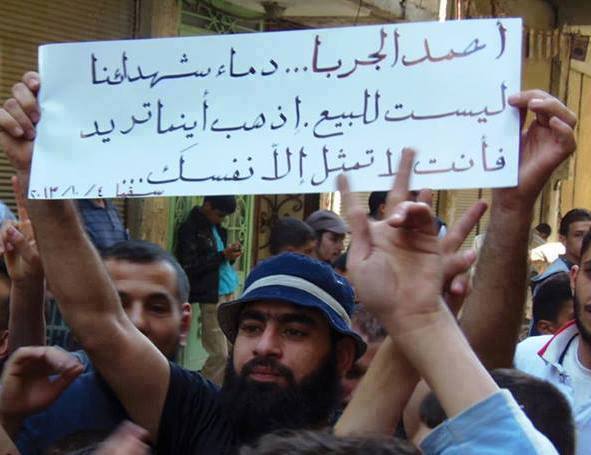 أحمد الجربا... دماء شهدائنا
ليست للبيع. إذهب أينما تريد
فأنت لا تمثل إلا نفسك...
سقبا ٢٠١٣/١٠/٤